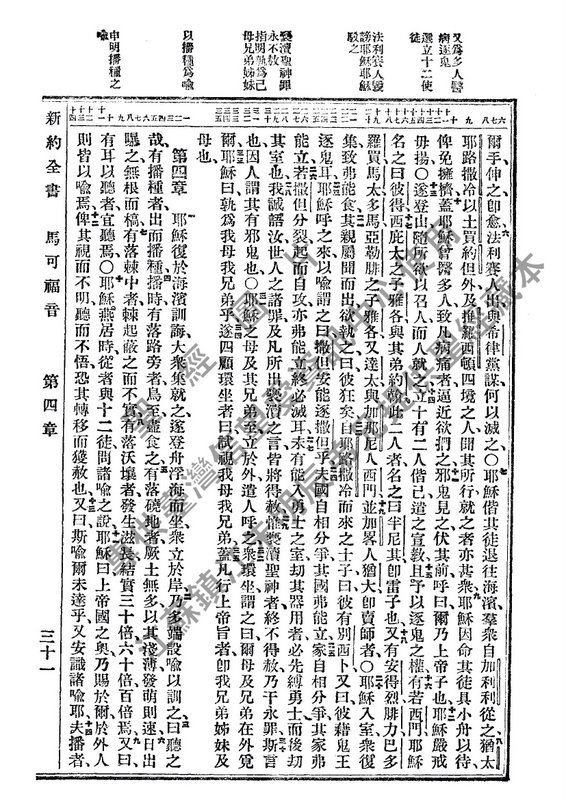 又爲多人醫
病逐鬼
選立十二使
徒
法利賽人毀
謗耶穌耶穌
駁之
褻瀆聖神罪
永不赦
指明孰爲己
母兄弟姊妹
以播種爲喻
申明播種之
喻
爾手伸之卽愈法利賽人出與希律黨謀何以滅之○耶穌偕其徒退往海濱羣衆自加利利從之猶太
耶路撒冷以土買約但外及推羅西頓四境之人聞其所行就之者亦甚衆耶穌因命其徒具小舟以待
俾免擁擠蓋耶穌曾醫多人致凡病痛者逼近欲捫之邪鬼見之伏其前呼曰爾乃上帝子也耶穌嚴戒
毋揚○遂登山隨所欲以召人而人就之立十有二人偕已遣之宣敎且予以逐鬼之權有若西門耶穌
名之曰彼得西庇太之子雅各與其弟約翰此二人者名之曰半尼其卽雷子也又有安得烈腓力巴多
羅買馬太多馬亞勒腓之子雅各又達太與加那尼人西門並加畧人猶大卽賣師者○耶穌入室衆復
集致弗能食其親屬聞而出欲執之曰彼狂矣自耶路撒冷而來之士子曰彼有別西卜又曰彼藉鬼王
逐鬼耳耶穌呼之來以喻謂之曰撒但安能逐撒但乎夫國自相分爭其國弗能立家自相分爭其家弗
能立若撒但分裂起而自攻亦弗能立終必滅耳未有能入勇士之室刧其器用者必先縛勇士而後刧
其室也我誠語汝世人之諸罪及凡所出褻瀆之言皆將得赦惟褻瀆聖神者終不得赦乃干永罪斯言
也因人謂其有邪鬼也○耶穌之母及其兄弟至立於外遣人呼之衆環坐謂之曰爾母及兄弟在外覓
爾耶穌曰孰爲我母我兄弟乎遂四顧環坐者曰試觀我母我兄弟蓋凡行上帝旨者卽我兄弟姊妹及
母也
第四章 耶穌復於海濱訓誨大衆集就之遂登舟浮海而坐衆立於岸乃多端設喻以訓之曰聽之
哉有播種者出而播種播時有落路旁者鳥至盡食之有落磽地者厥土無多以其淺薄發萌則速日出
曝之無根而槁有落棘中者棘起蔽之而不實有落沃壤者發生滋長結實三十倍六十倍百倍焉又曰
有耳以聽者宜聽焉○耶穌燕居時從者與十二徒問諸喻之說耶穌曰上帝國之奧乃賜於爾於外人
則皆以喻焉俾其視而不明聽而不悟恐其轉移而獲赦也又曰斯喻爾未達乎又安識諸喻耶夫播者
新約全書 馬可福音 第四章 三十一